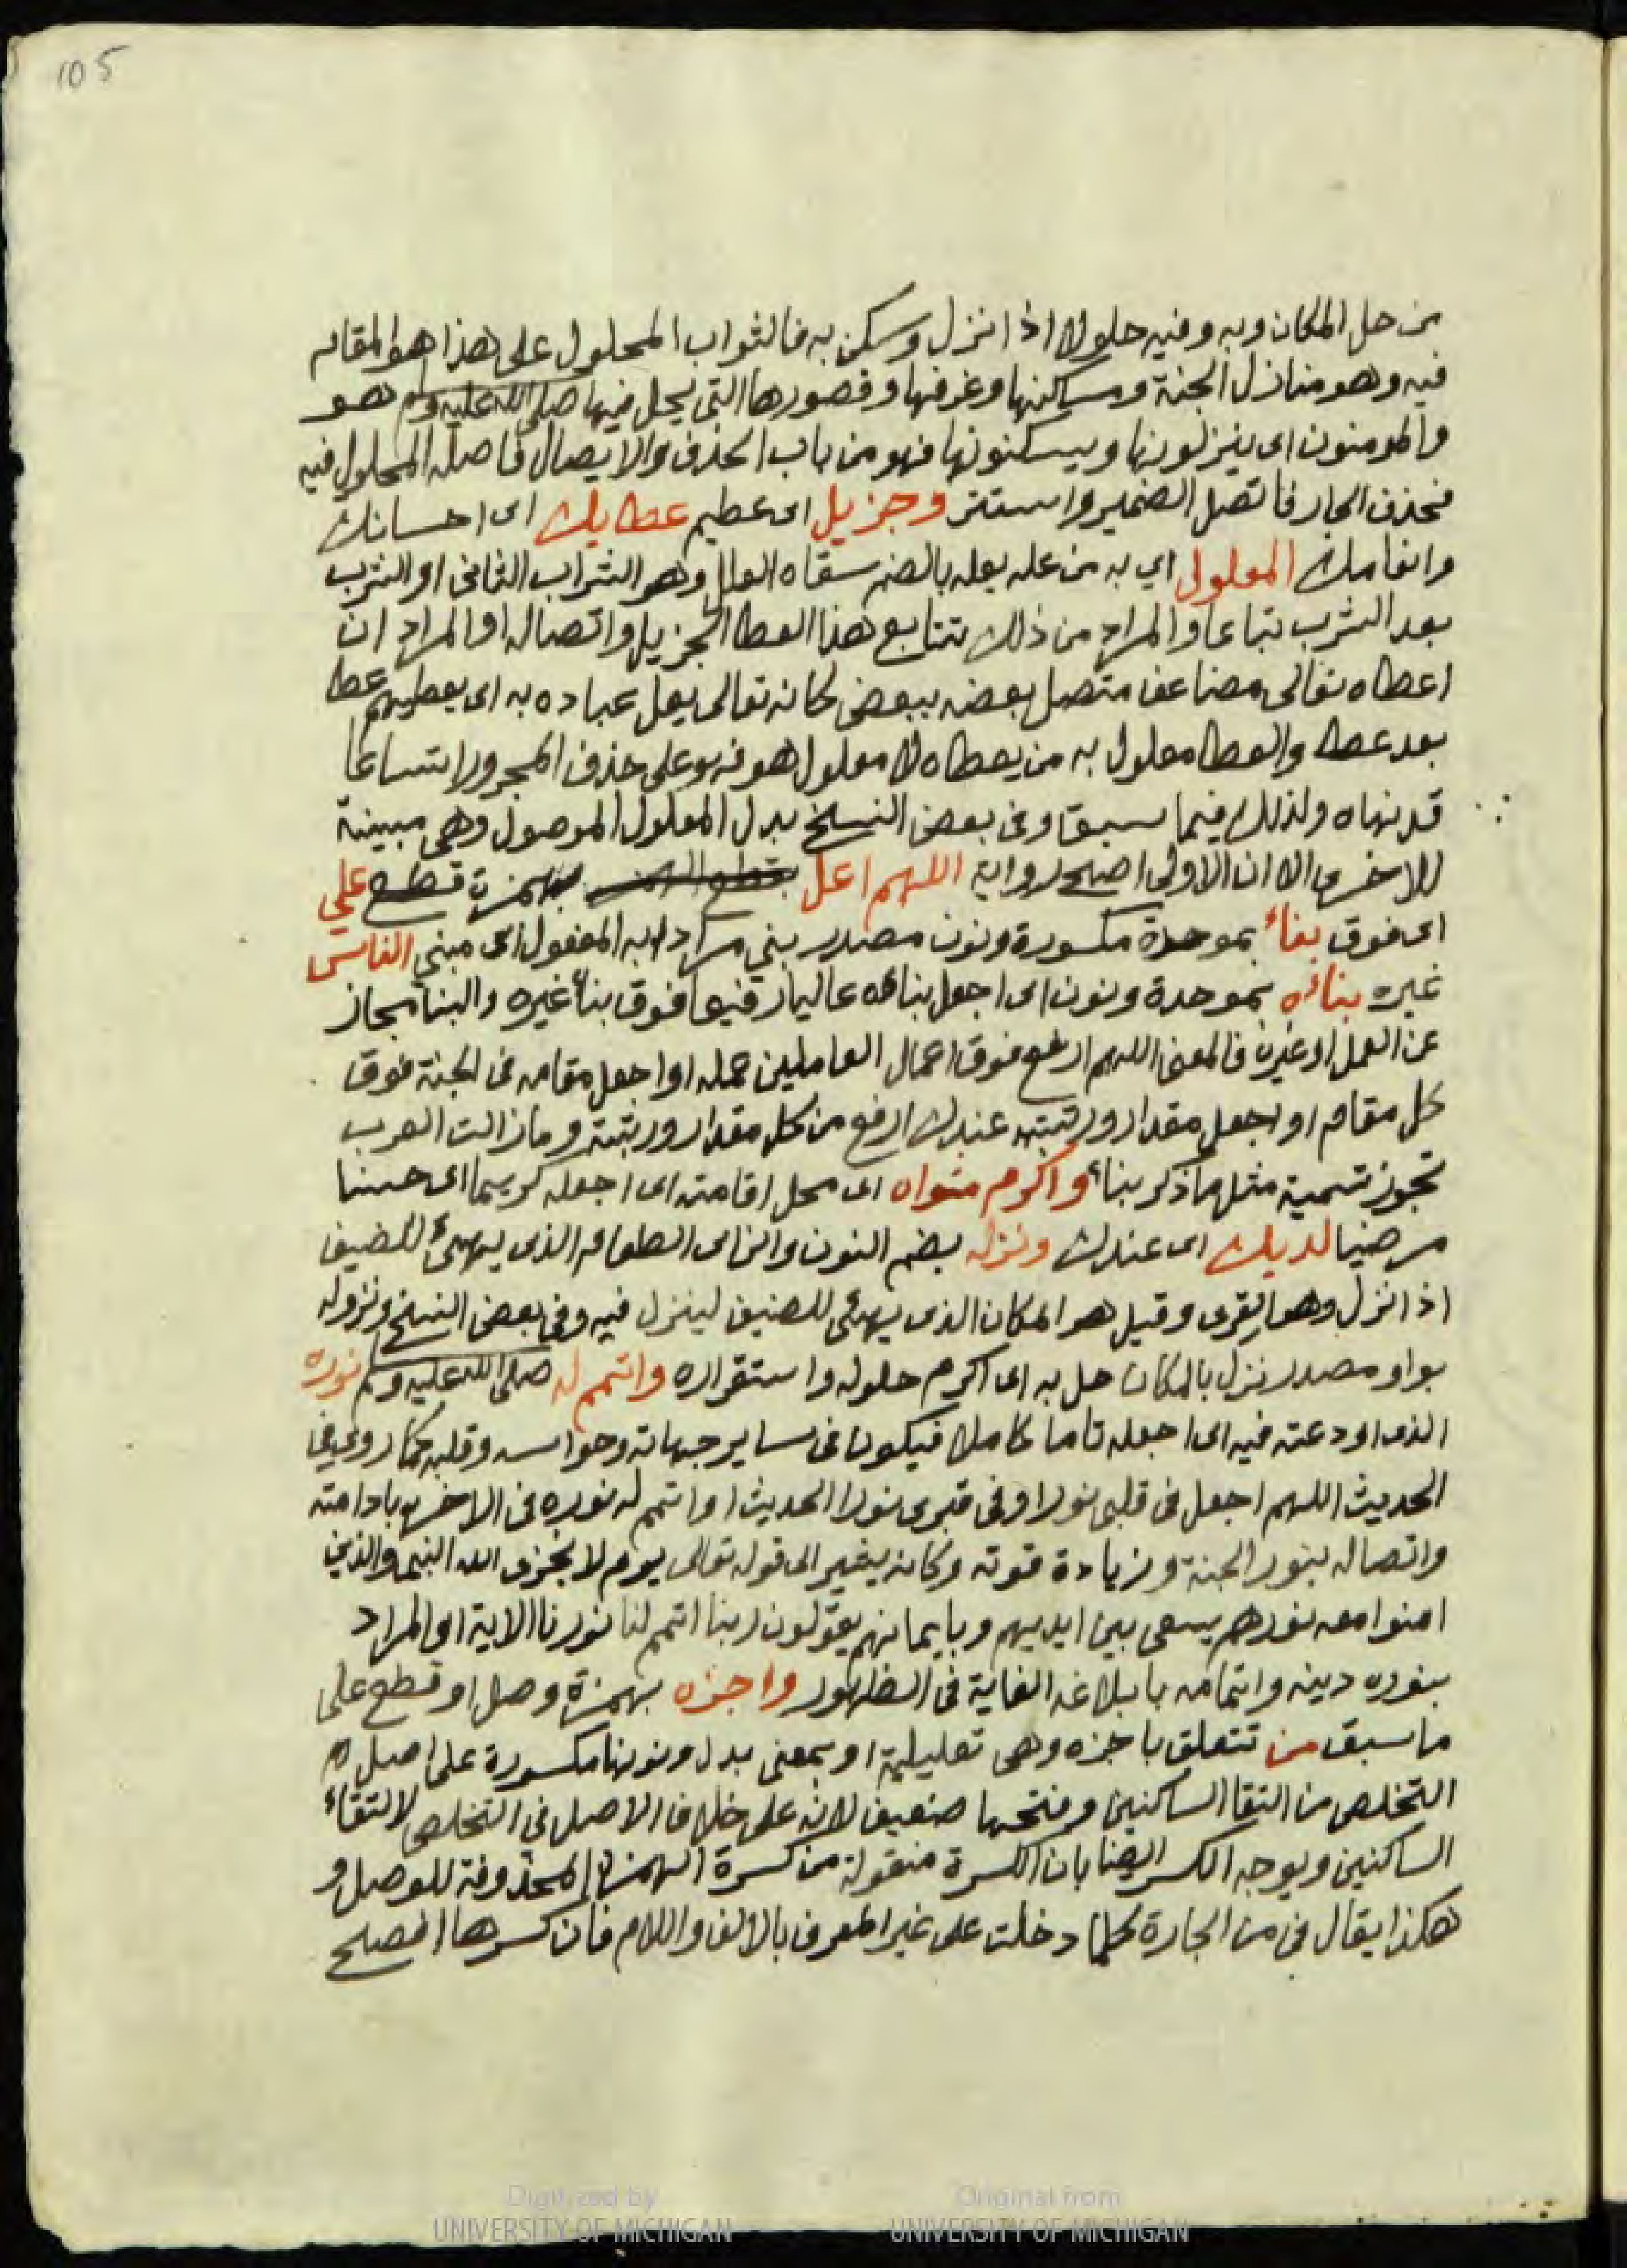 105
من حل المكان وبه وفيه حلولا اذا نزل وسكن به فالثواب المحلول على هذا هو المقام
فيه وهو منازل الجنة ومساكنها وغرفها وقصورها التي يحل فيها صلى الله عليه وسلم هو
والمومنون اي ينزلونها ويسكنونها فهو من باب الحذف والايصال فاصله المحلول فيه
فحذف الجار فاتصل الضمير واستتر وجزيل اى عظيم عطايك اى احسانك
وانعامك المعلول اي به من عله يعله بالضم سقاه العلل وهو الشراب الثانى او الشرب
بعد الشرب تباعا والمراد من ذلك تتابع هذا العطا الجزيل واتصاله او المراد ان
اعطاه تعالى مضاعف متصل بعضه ببعض كانه تعالى يعل عباده به اى يعطيهم عطا
بعد عطا والعطا معلول به من يعطاه لا معلول هو فهو على حذف المجرور اتساعا
قد نهاه ولذلك فيما سبق وفى بعض النسخ بدل المعلول الموصول وهى مبينة
للاخرى الا ان الاولى اصح رواية اللهم اعل بقطع الهمز بهمزة قطع على
اى فوق بناء بموحدة مكسورة ونون مصدر بنى مرادا به المفعول اى مبنى الناس
غيره بناءه بموحدة ونون اى اجعل بناءه عاليا رفيعا فوق بناء غيره والبنا مجاز
عن العمل او غيره فالمعنى اللهم ارفع فوق اعمال العاملين عمله او اجعل مقامه فى الجنة فوق
كل مقام او اجعل مقداره ورتبته عندك ارفع من كل مقدار ورتبة وما زالت العرب
تجوز تسمية مثل ما ذكر بناء واكرم مثواه اى محل اقامته اى اجعله كريما اى حسنا
مرضيا لديك اى عندك ونزله بضم النون والزاى الطعام الذى يهيئ للضيف
اذا نزل وهو القرى وقيل هو المكان الذى يهيئ للضيف لينزل فيه وفى بعض النسخ ونزوله
بواو مصدر نزل بالمكان حل به اى اكرم حلوله واستقراره واتمم له صلى الله عليه وسلم نوره
الذى اودعته فيه اى اجعله تاما كاملا فيكون فى ساير جهاته وحواسه وقلبه كما روي فى
الحديث اللهم اجعل فى قلبى نورا وفى قبرى نورا الحديث او اتمم له نوره فى الاخرة بادامته
واتصاله بنور الجنة وزيادة قوته وكانه يشير الى قوله تعالى يوم لا يخزى الله النبى والذين
امنوا معه نورهم يسعى بين ايديهم وبايمانهم يقولون ربنا اتمم لنا نورنا الاية او المراد
بنوره دينه واتمامه بابلاغه الغاية فى الظهور واجزه بهمزة وصل او قطع على
ما سبق من تتعلق باجزه وهى تعليلية او بمعنى بدل ونونها مكسورة على اصل
التخلص من التقا الساكنين وفتحها ضعيف لانه على خلاف الاصل فى التخلص لالتقاء
الساكنين ويوجه الكسر ايضا بان الكسرة منقولة من كسرة الهمزة المحذوفة للوصل و
هكذا يقال فى من الجارة كلما دخلت على غير المعرف بالالف واللام فان كسرها افصح
Digitized by
UNIVERSITY OF MICHIGAN
Original from
UNIVERSITY OF MICHIGAN